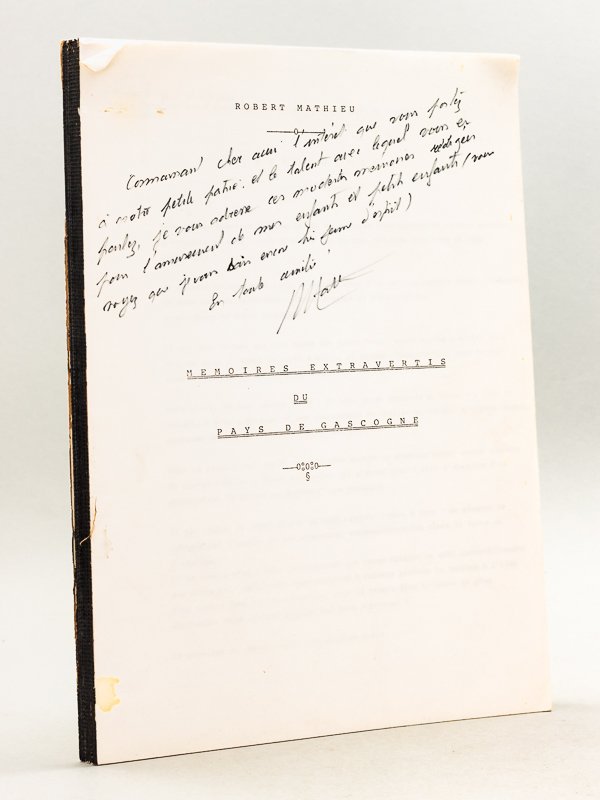 ROBERT MATHIEU
Connaissant cher ami l'intérêt que vous portez
à notre petite patrie et le talent avec lequel vous en
parlez, je vous adresse ces modestes memoires rédigées
pour l'amusement de mes enfants et petits enfants (vous
voyez que je suis bien encore jeune d'esprit)
En toute amitié
MEMOIRES EXTRAVERTIS
DU
PAYS DE GASCOGNE
§